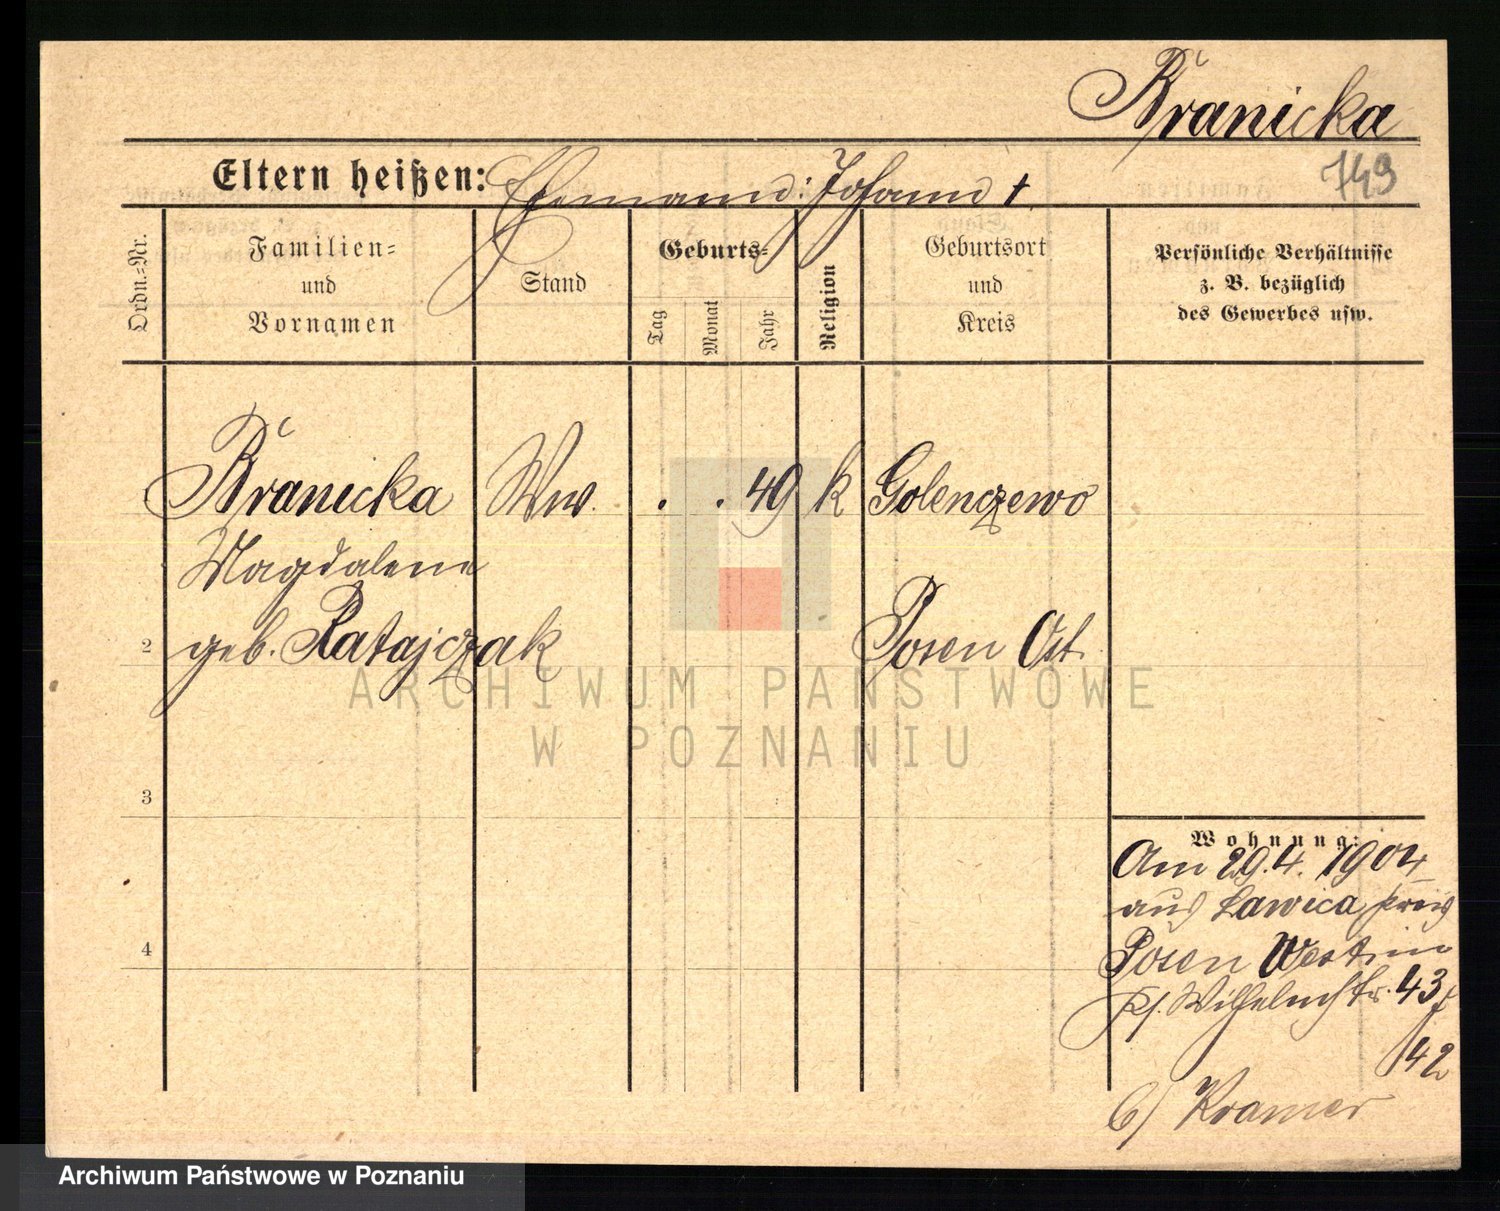 Branicka
749
Eltern heißen: Ehemann: Johann †
Ordn.=Nr.
Familien=
und
Vornamen
Stand
Geburts=
Tag
Monat
Jahr
Religion
Geburtsort
und
Kreis
Persönliche Verhältnisse
z. B. bezüglich
des Gewerbes usw.
Branicka Ww. . . 49 k Golenczewo
Magdalene
2 geb. Ratajczak Posen Ost.
3
4
Wohnung:
Am 29.4. 1904
aus Lawica Kreis
Posen West in
Wilhelmstr. 43
/42
b/ Kramer
ARCHIWUM PAŃSTWOWE
W POZNANIU
Archiwum Państwowe w Poznaniu